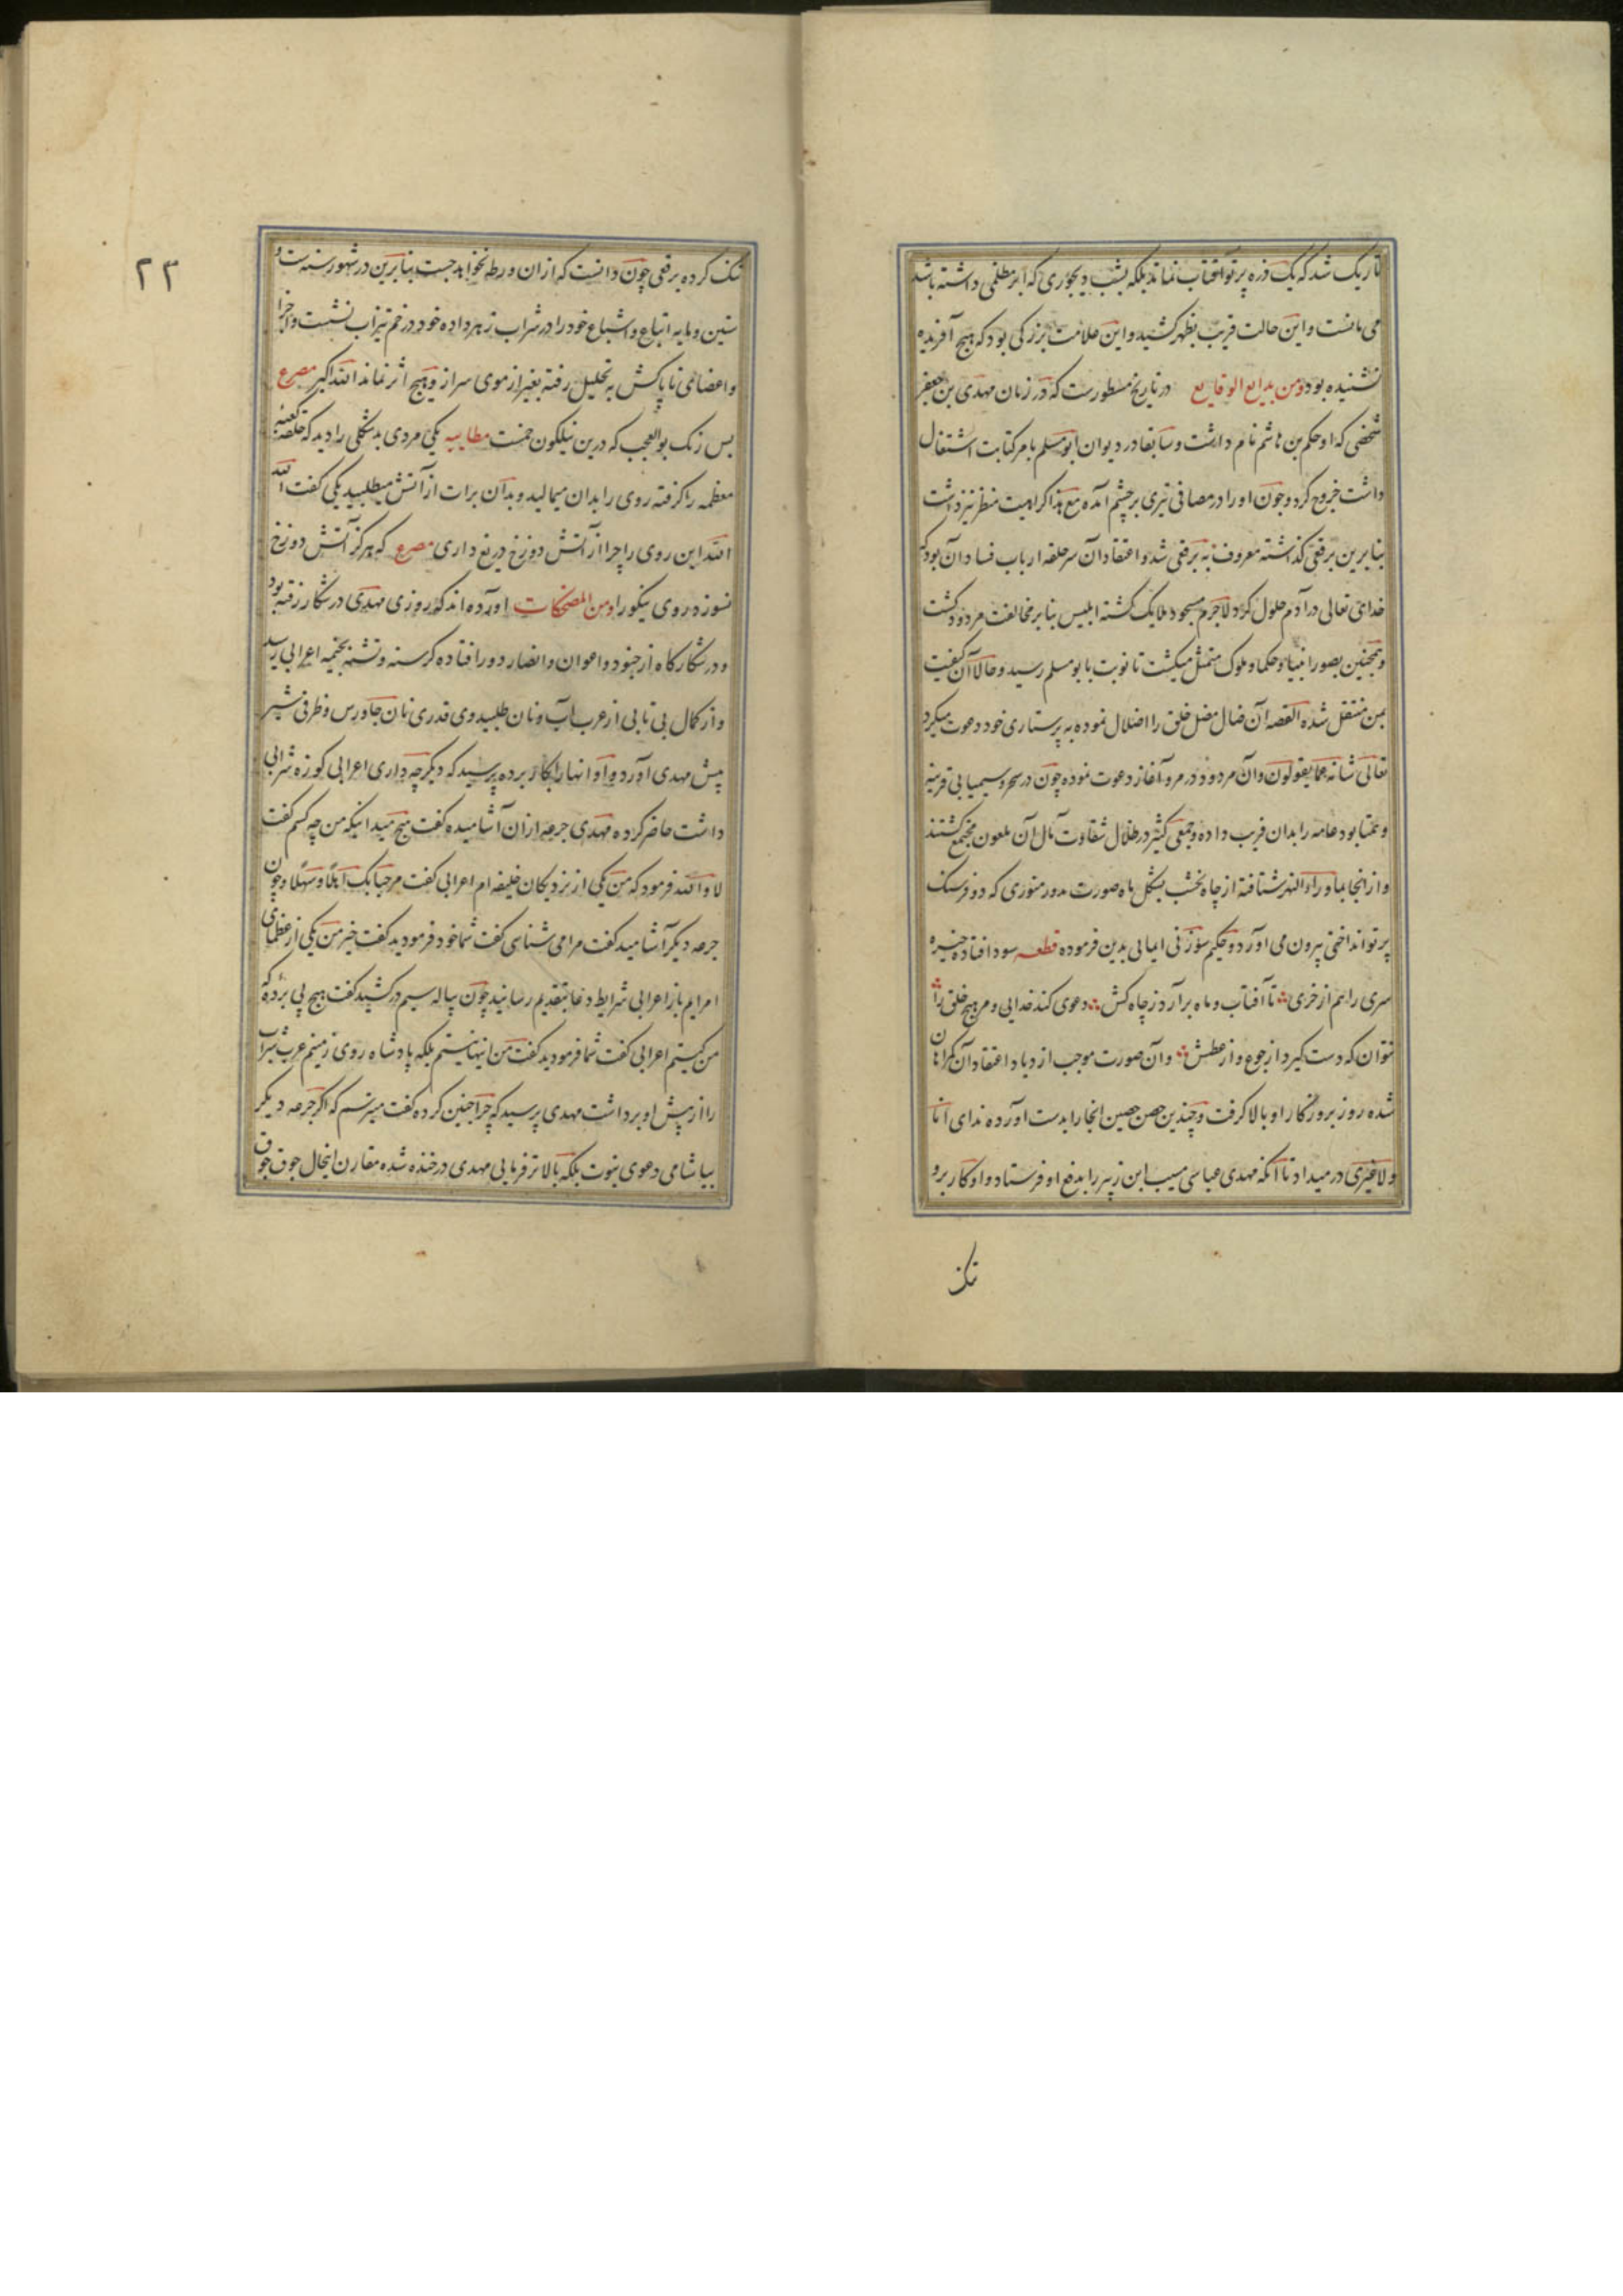 تاریک شد که یک ذره پرتو آفتاب نماند بلکه بشب دیجوری که ابر مظلمی داشته باشد
می مانست و این حالت قریب بظهر کشید و این علامت بزرکی بود که هیچ آفریده
نشنیده بود ومن بدایع الوقایع در تاریخ مسطورست که در زمان مهدی بن جعفر
شخصی که او حکم بن هاشم نام داشت و سابقا در دیوان ابومسلم بامر کتابت اشتغال
داشت خروج کرد و چون او را در مصافی تیری بر چشم آمده مع هذا کراهیت منظر نیز داشت
بنابرین برقعی کذاشته معروف به برقعی شد و اعتقاد آن سرحلقه ارباب فساد آن بود که
خدای تعالی در آدم حلول کرد لاجرم مسجود ملایک کشته ابلیس بنابر مخالفت مردود کشت
و همچنین بصور انبیا و حکما و ملوک متمثل میکشت تا نوبت بابو مسلم رسید و حالا آن کیفیت
بمن منتقل شده القصه آن ضال مضل خلق را اضلال نموده به پرستاری خود دعوت میکرد
تعالی شانه عما یقولون و آن مردود در مرو آغاز دعوت نموده چون در سحر و سیمیا بی قرینه
و همتا بود عامه را بدان فریب داده و جمعی کثیر در ظلال شقاوت مآل آن ملعون مجتمع کشتند
و از انجا بماوراء النهر شتافته از چاه نخشب بشکل ماه صورت مدور منوری که دو فرسنک
پرتو انداختی بیرون می اورد و حکیم سوزنی ایمایی بدین فرموده قطعه سودا فتاده خیره
سری را هم از خری تا آفتاب و ماه برآرد ز چاه کش دعوی کند خدایی و مر هیچ خلق را
نتوان که دست کیرد از جوع و از عطش و آن صورت موجب ازدیاد اعتقاد آن کمراهان
شده روز بروز کار او بالا کرفت و چندین حصن حصین انجا را بدست اورده ندای انا
ولاغیری در میداد تا انکه مهدی عباسی مسیب ابن زبیر را بدفع او فرستاد و او کار برو
تنک
۲۳
تنک کرده برقعی چون دانست که ازان ورطه نخواهد جست بنابرین در شهور سنه ست و
ستین و مایه اتباع و اشیاع خود را در شراب زهر داده خود در خم تیزاب نشست و اجزا
و اعضای ناپاکش به تحلیل رفته بغیر از موی سر ازو هیچ اثر نماند الله اکبر مصرع
بس رنک بوالعجب که درین نیلکون خمست مطایبه یکی مردی بدشکلی را دید که حلقه کعبه
معظمه را کرفته روی را بدان میمالید و بدان برات از آتش میطلبید یکی کفت الله
الله این روی را چرا از آتش دوزخ دریغ داری مصرع که هرکز آتش دوزخ
نسوزد روی نیکو را ومن المضحکات اورده اند که روزی مهدی در شکار رفته بود
و در شکارکاه از جنود و اعوان و انصار دور افتاده کرسنه و تشنه بخیمه اعرابی رسید
و از کمال بی تابی از عرب آب و نان طلبید وی قدری نان جاورس و ظرفی شیر
پیش مهدی اورد و او انها را بکار برده پرسید که دیکر چه داری اعرابی کوزه شرابی
داشت حاضر کرده مهدی جرعه ازان آشامیده کفت هیچ میدانیکه من چه کسم کفت
لا والله فرمود که من یکی از نزدیکان خلیفه ام اعرابی کفت مرحبا بک اهلا وسهلا و چون
جرعه دیکر آشامید کفت مرا می شناسی کفت شما خود فرمودید کفت خیر من یکی از عظمای
امرایم باز اعرابی شرایط دعا بتقدیم رسانید چون پیاله سیم درکشید کفت هیچ پی برده که
من کیستم اعرابی کفت شما فرمودید کفت من اینها نیستم بلکه پادشاه روی زمینم عرب شراب
را از پیش او برداشت مهدی پرسید که چرا چنین کرده کفت میترسم که اکر جرعه دیکر
بیاشامی دعوی نبوت بلکه بالاتر فرمایی مهدی در خنده شده مقارن اینحال جوق جوق